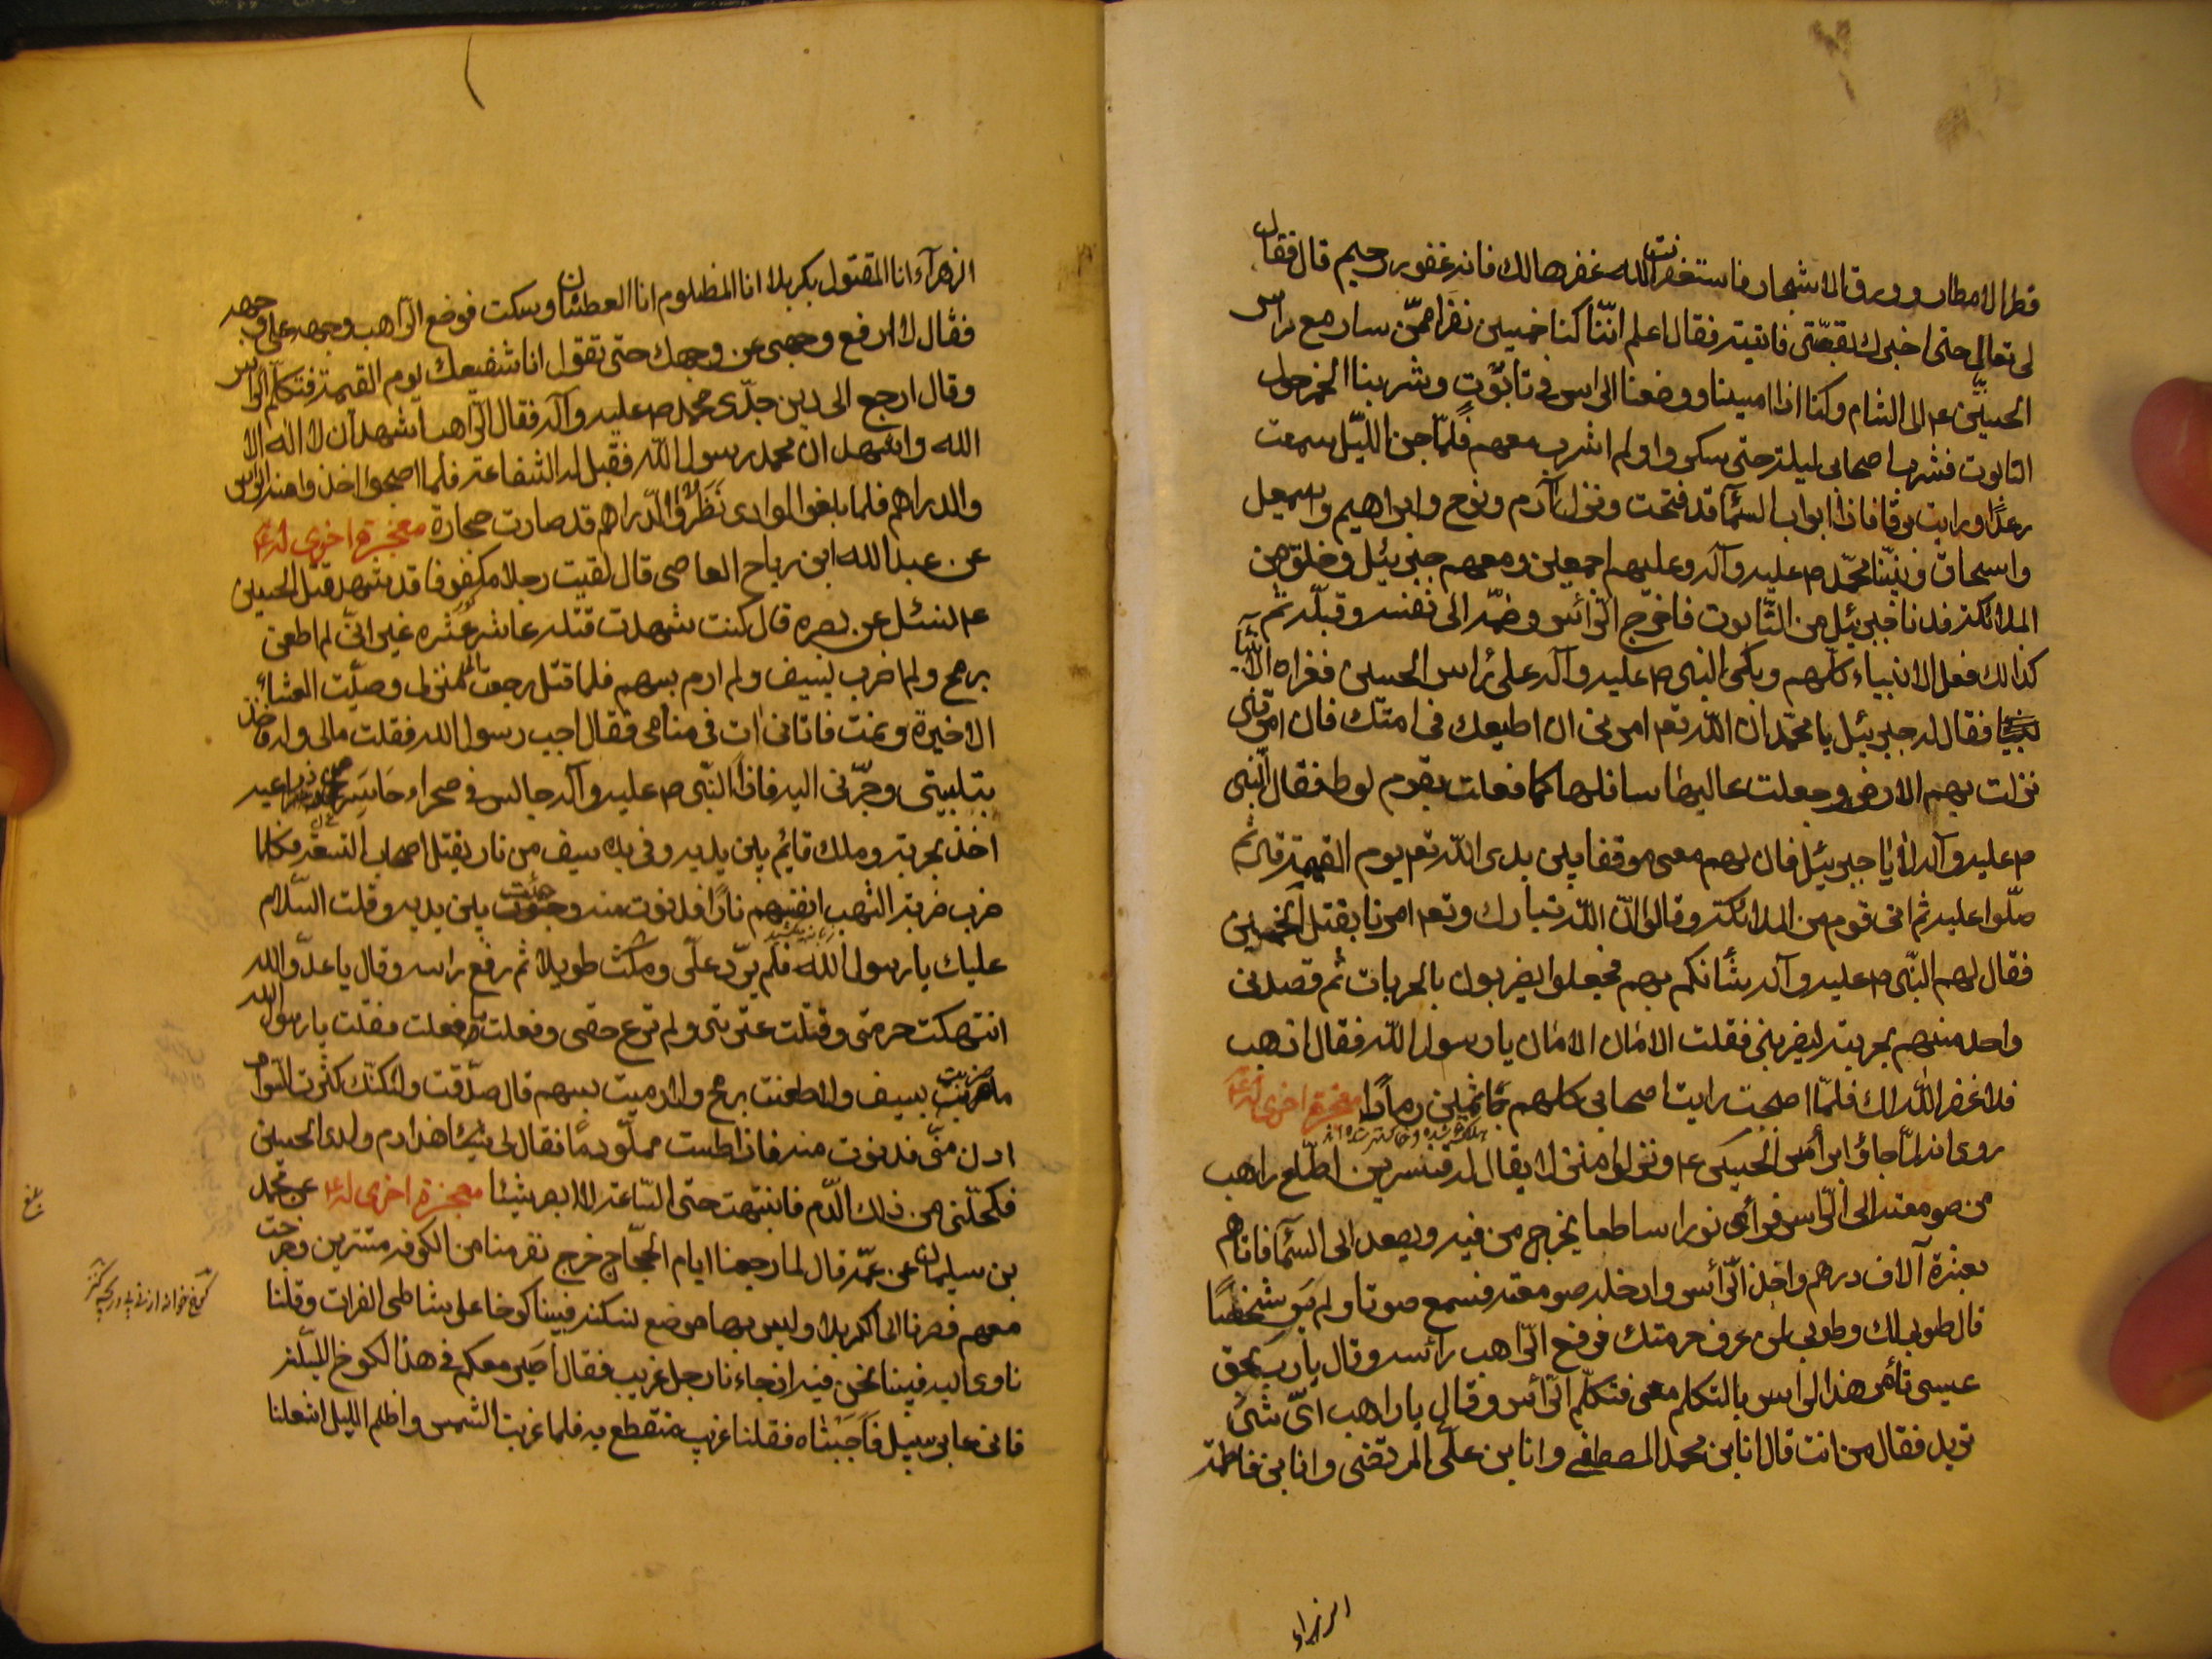 قطر الامطار وورق الاشجار فاستغفرت الله غفرها لك فانه غفور رحيم قال فقال
لى تعالى حتى اخبرك بقصّتى فاتيته فقال اعلم انّنا كنا خمسين نفرًا ممّن سار مع راس
الحسين ع م الى الشام وكنا اذا امسينا وضعنا الراس فى تابوت وشربنا الخمر حول
التابوت فشرب اصحابى ليلة حتى سكروا ولم اشرب معهم فلمّا جن الليّل سمعت
رعدًا ورايت برقا فاذا ابواب السمآء قد فتحت ونزل آدم ونوح وابراهيم واسمعيل
واسحاق ونبيّنا محمّد ص عليه وآله وعليهم اجمعين ومعهم جبرئيل وخلق من
الملائكة فدنا جبرئيل من التّابوت فاخرج الرّاس وضمّه الى نفسه وقبلّه ثم
كذالك فعل الانبياء كلّهم وبكى النبى ص عليه وآله على راس الحسين فعزاه الانبياء
فقال له جبرئيل يا محمّد ان اللّه تعم امرنى ان اطيعك فى امتك فان امرتنى
نزلت بهم الارض وجعلت عاليها سافلها كما فعلت بقوم لوط فقال النّبى
ص عليه وآله لا يا جبرئيل فان لهم معى موقفا بين يدى اللّه تعم يوم القيمة قال ثم
صلّوا عليه ثم اتى قوم من الملائكة وقالوا انّ اللّه تبارك وتعم امرنا بقتل الخمسين
فقال لهم النّبى ص عليه وآله شأنكم بهم فجعلوا يضربون بالحربات ثم قصدنى
واحد منهم بحربته ليضربنى فقلت الامان الامان يا رسول اللّه فقال اذهب
فلا غفر اللّه لك فلمّا اصبحت رايت اصحابى كلهم جاثمين رمادًا معجزة اخرى له ع
روى انه لمّا جاؤا براس الحسين ع م ونزلوا منزلا يقال له قنسرين اطّلع راهب
من صومعته الى الرّاس فراى نورا ساطعا يخرج من فيه ويصعد الى السّمآء فاتاهم
بعشرة آلاف درهم واخذ الرّأس وادخله صومعته فسمع صوتا ولم ير شخصًا
قال طوبى لك وطوبى لمن عرف حرمتك فرفع الرّاهب رأسه وقال يا رب بحق
عيسى تأمر هذا الراس بالتكلم معى فتكلّم الرّأس وقال يا راهب اىّ شئ
تريد فقال من انت قال انا بن محمد المصطفى وانا بن على المرتضى وانا بن فاطمة
الزهراء
الزهرآء انا المقتول بكربلا انا المظلوم انا العطشان وسكت فوضع الرّاهب وجهه على وجهه
فقال لا ارفع وجهى عن وجهك حتى تقول انا شفيعك يوم القيمة فتكلّم الرّاس
وقال ارجع الى دين جدّى محمد ص عليه وآله فقال الرّاهب اشهد ان لا اله الا
الله واشهد ان محمد رسول اللّه فقبل له الشفاعة فلما اصبحوا اخذوا منه الرّاس
والدراهم فلما بلغوا الوادى نَظَرُوا الدّراهم قد صارت حجارة معجزة اخرى له ع
عن عبد الله ابن رباح العاصى قال لقيت رجلا مكفوفا قد شهد قتل الحسين
ع م فسئل عن بصره قال كنت شهدت قتله عاشر عشره غير انّى لم اطعن
برمح ولم اضرب بسيف ولم ارم بسهم فلما قتل رجعت الى منزلى وصلّيت العشاء
الاخيرة ونمت فاتانى ات فى منامى فقال اجب رسول الله فقلت مالى وله فاخذ
بتلبيتى وجرّنى اليه فاذا النّبى ص عليه وآله جالس فى صحراء حاسر عن ذراعيه
اخذ بحربته وملك قائم بين يديه وفى يده سيف من نار يقتل اصحاب التسعة فكلما
ضرب ضربة التهب انفسهم نارًا فدنوت منه وجثوت بين يديه وقلت السّلام
عليك يا رسول الله فلم يردّ علّى ومكث طويلا ثم رفع راسه وقال يا عدوّ الله
انتهكت حرمتى وقتلت عترتى ولم ترع حقى وفعلت ما فعلت فقلت يا رسول الله
ما ضربت بسيف ولا طعنت برمح ولا رميت بسهم قال صدّقت ولكنّك كثرت السّواد
ادن منّى فدنوت منه فاذا طست مملّو دمًا فقال لى هذا دم ولدى الحسين
فكحّلنى من ذلك الّدم فانتبهت حتى السّاعة لا ابصر شيئا معجزة اخرى له ع عن محمد
بن سليمان عن عمّه قال لما رجعنا ايام الحجّاج خرج نفر منا من الكوفه مستترين وخرجت
معهم فصرنا الى كربلا وليس بها موضع نسكنه فبينا كوخا على شاطى الفرات وقلنا
ناوى اليه فبينا نحن فيه اذ جاءنا رجل غريب فقال اصير معكم فى هذا الكوخ الليّلة
فانى عابر سبيل فاَجَبْناه فقلنا غريب منقطع به فلما غربت الشمس واظلم الليل اشعلنا